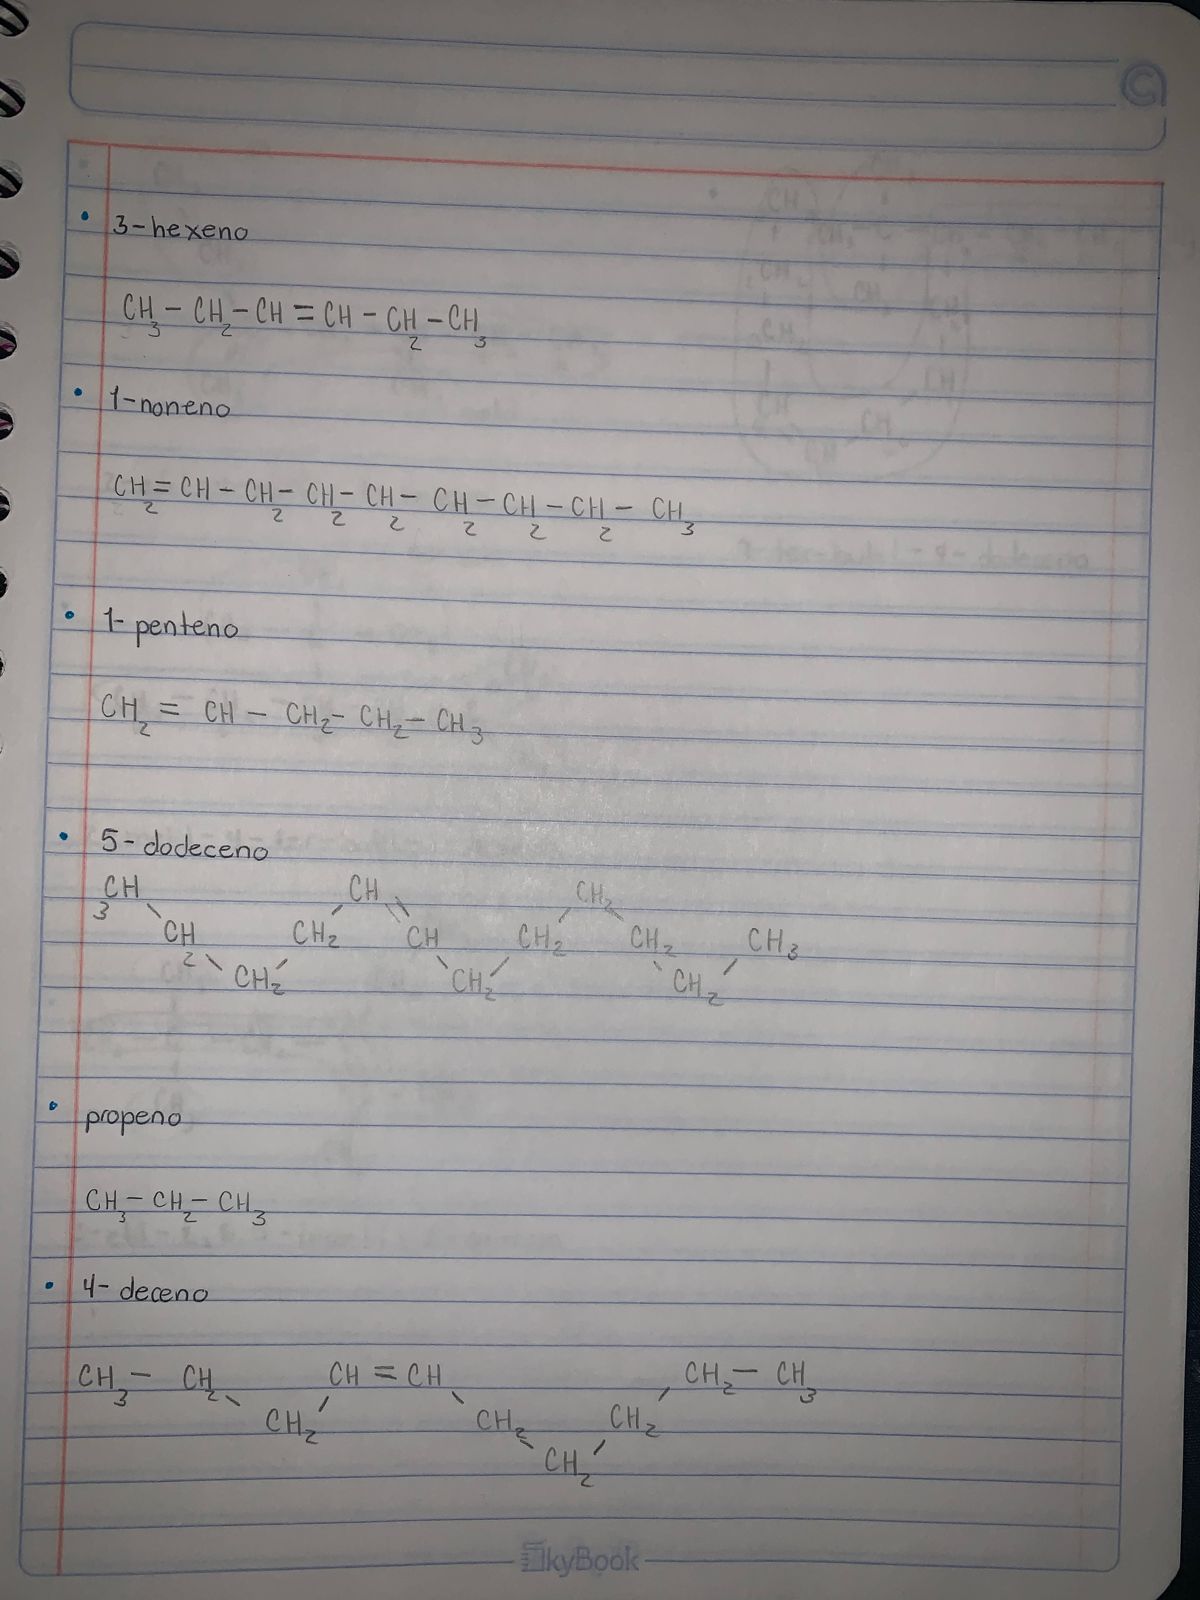 3-hexeno
CH3 - CH2 - CH = CH - CH2 - CH3
1-noneno
CH2 = CH - CH2 - CH2 - CH2 - CH2 - CH2 - CH2 - CH3
1- penteno
CH2 = CH - CH2 - CH2 - CH3
5- dodeceno
CH3 CH CH2
CH2 CH2 CH CH2 CH2 CH3
CH2 CH2 CH2
propeno
CH3 - CH2 - CH3
4- deceno
CH3 - CH2 CH = CH CH2 - CH3
CH2 CH2 CH2
CH2
SkyBook